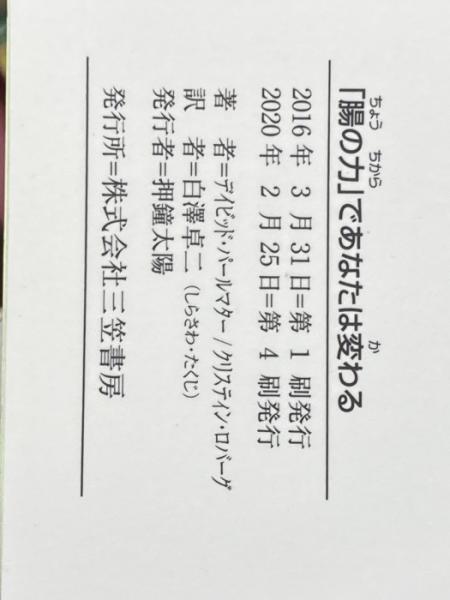 「腸の力」であなたは変わる
ちょう ちから か
2016年 3月31日=第 1 刷発行
2020年 2月25日=第 4 刷発行
著 者=デイビッド・パールマター/クリスティン・ロバーグ
訳 者=白澤卓二(しらさわ・たくじ)
発行者=押鐘太陽
発行所=株式会社三笠書房